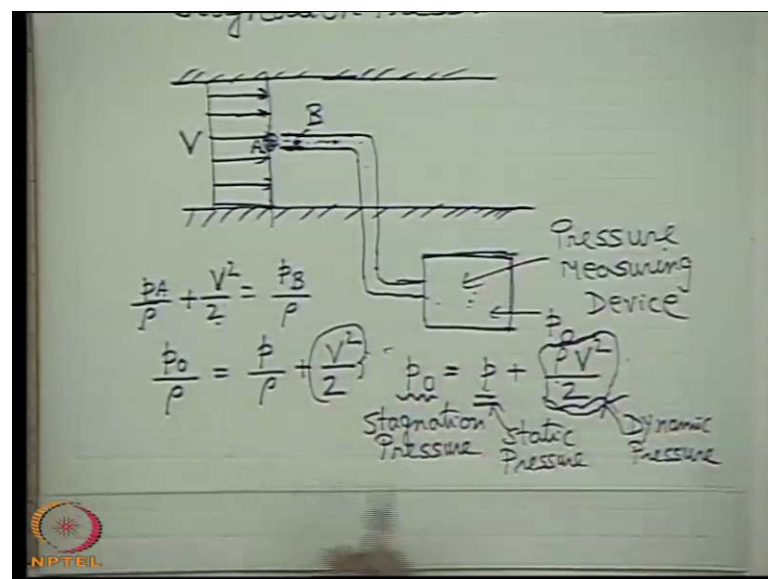 Stagnation Pressure
V
A
B
Pressure
Measuring
Device
p₀
p_A/ρ + V²/2 = p_B/ρ
p₀/ρ = p/ρ + V²/2
p₀ = p + ρV²/2
Stagnation
Pressure
Static
Pressure
Dynamic
Pressure
NPTEL